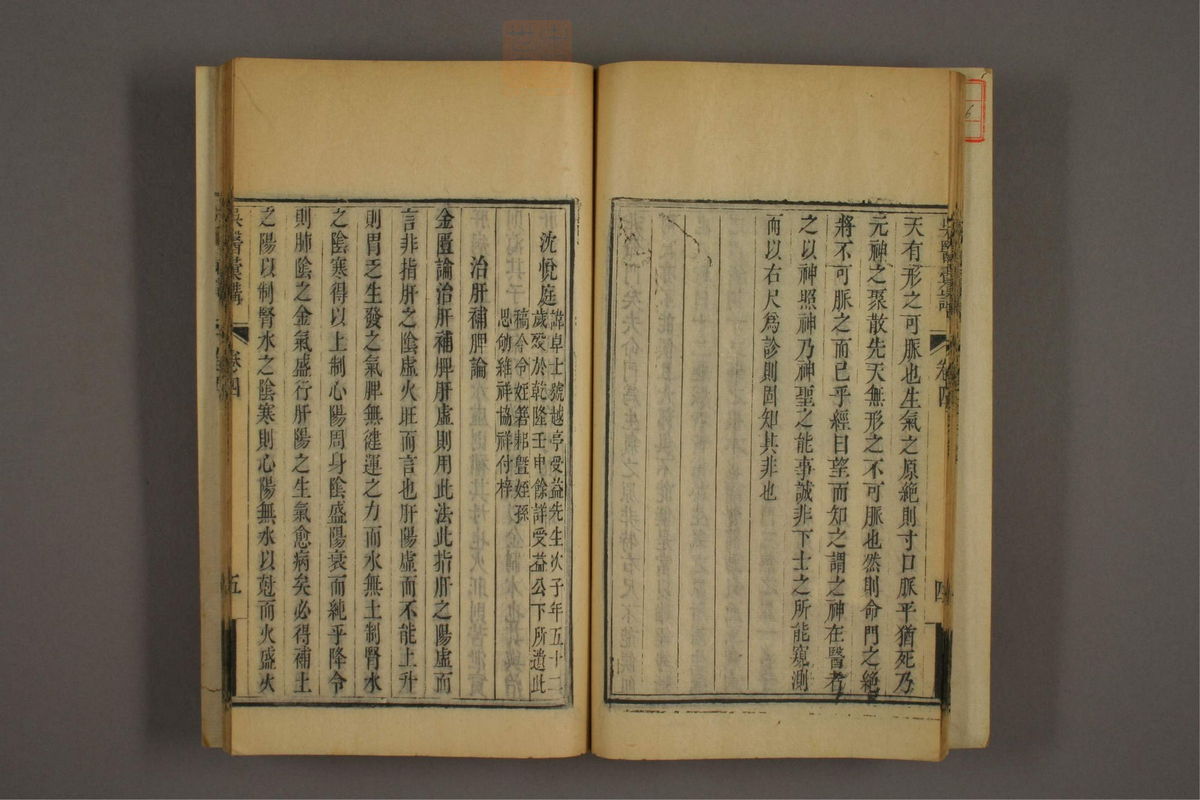 天有形之可脈也生氣之原絶則寸口脈平猶死乃
元神之聚散先天無形之不可脈也然則命門之絶
將不可脈之而已乎經曰望而知之謂之神在醫者
之以神照神乃神聖之能事誠非下士之所能窺測
而以右尺爲診則固知其非也
吳醫彙講
卷四
四
沈悅庭
諱卓士號越亭受益先生次子年五十二
歲歿於乾隆壬申餘詳受益公下所遺此
稿今令姪
曁姪孫
思劬維祥協祥付梓
治肝補脾論
金匱論治肝補脾肝虛則用此法此指肝之陽虛而
言非指肝之陰虛火旺而言也肝陽虛而不能上升
則胃乏生發之氣脾無健運之力而水無土制腎水
之陰寒得以上制心陽周身陰盛陽衰而純乎降令
則肺陰之金氣盛行肝陽之生氣愈病矣必得補土
之陽以制腎水之陰寒則心陽無水以尅而火盛火
吳醫彙講
卷四
五